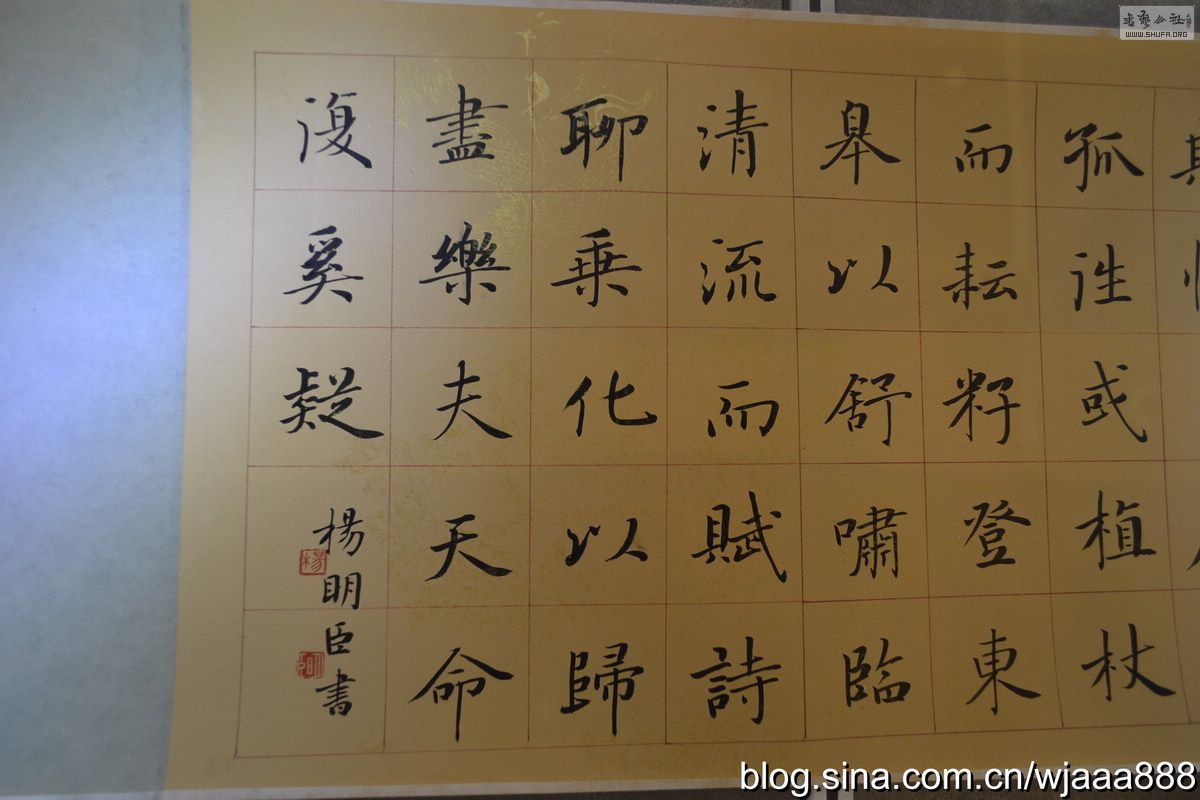 孤往或植杖
而耘籽登東
皋以舒嘯臨
清流而賦詩
聊乘化以歸
盡樂夫天命
復奚疑
楊明臣書
楊
WWW.SHUFA.ORG
blog.sina.com.cn/wjaaa888